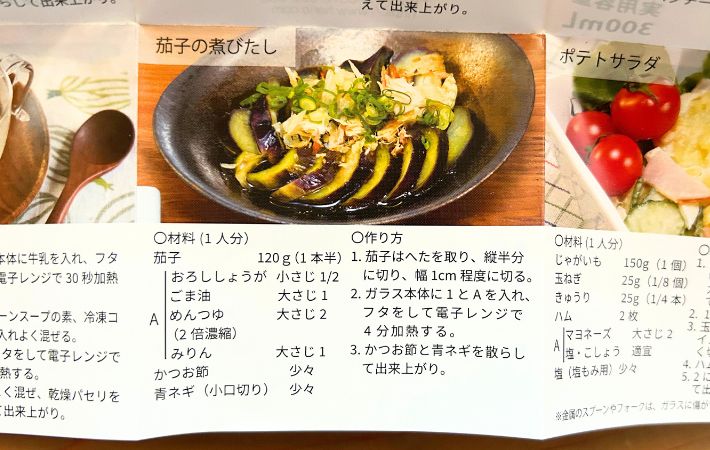 らして出来上がり。
えて出来上がり。
実用容量
300mL
茄子の煮びたし
ポテトサラダ
本体に牛乳を入れ、フタ
電子レンジで 30 秒加熱
ーンスープの素、冷凍コ
入れよく混ぜる。
フタをして電子レンジで
熱する。
く混ぜ、乾燥パセリを
て出来上がり。
〇材料 (1 人分)
茄子 120g (1 本半)
A
おろししょうが 小さじ 1/2
ごま油 大さじ 1
めんつゆ 大さじ 2
(2 倍濃縮)
みりん 大さじ 1
かつお節 少々
青ネギ (小口切り) 少々
〇作り方
1. 茄子はへたを取り、縦半分
に切り、幅 1cm 程度に切る。
2. ガラス本体に 1 と A を入れ、
フタをして電子レンジで
4 分加熱する。
3. かつお節と青ネギを散らし
て出来上がり。
〇材料 (1 人分)
じゃがいも 150g (1 個)
玉ねぎ 25g (1/8 個)
きゅうり 25g (1/4 本)
ハム 2 枚
A
マヨネーズ 大さじ 2
塩・こしょう 適宜
塩 (塩もみ用) 少々
※金属のスプーンやフォークは、ガラスに傷が